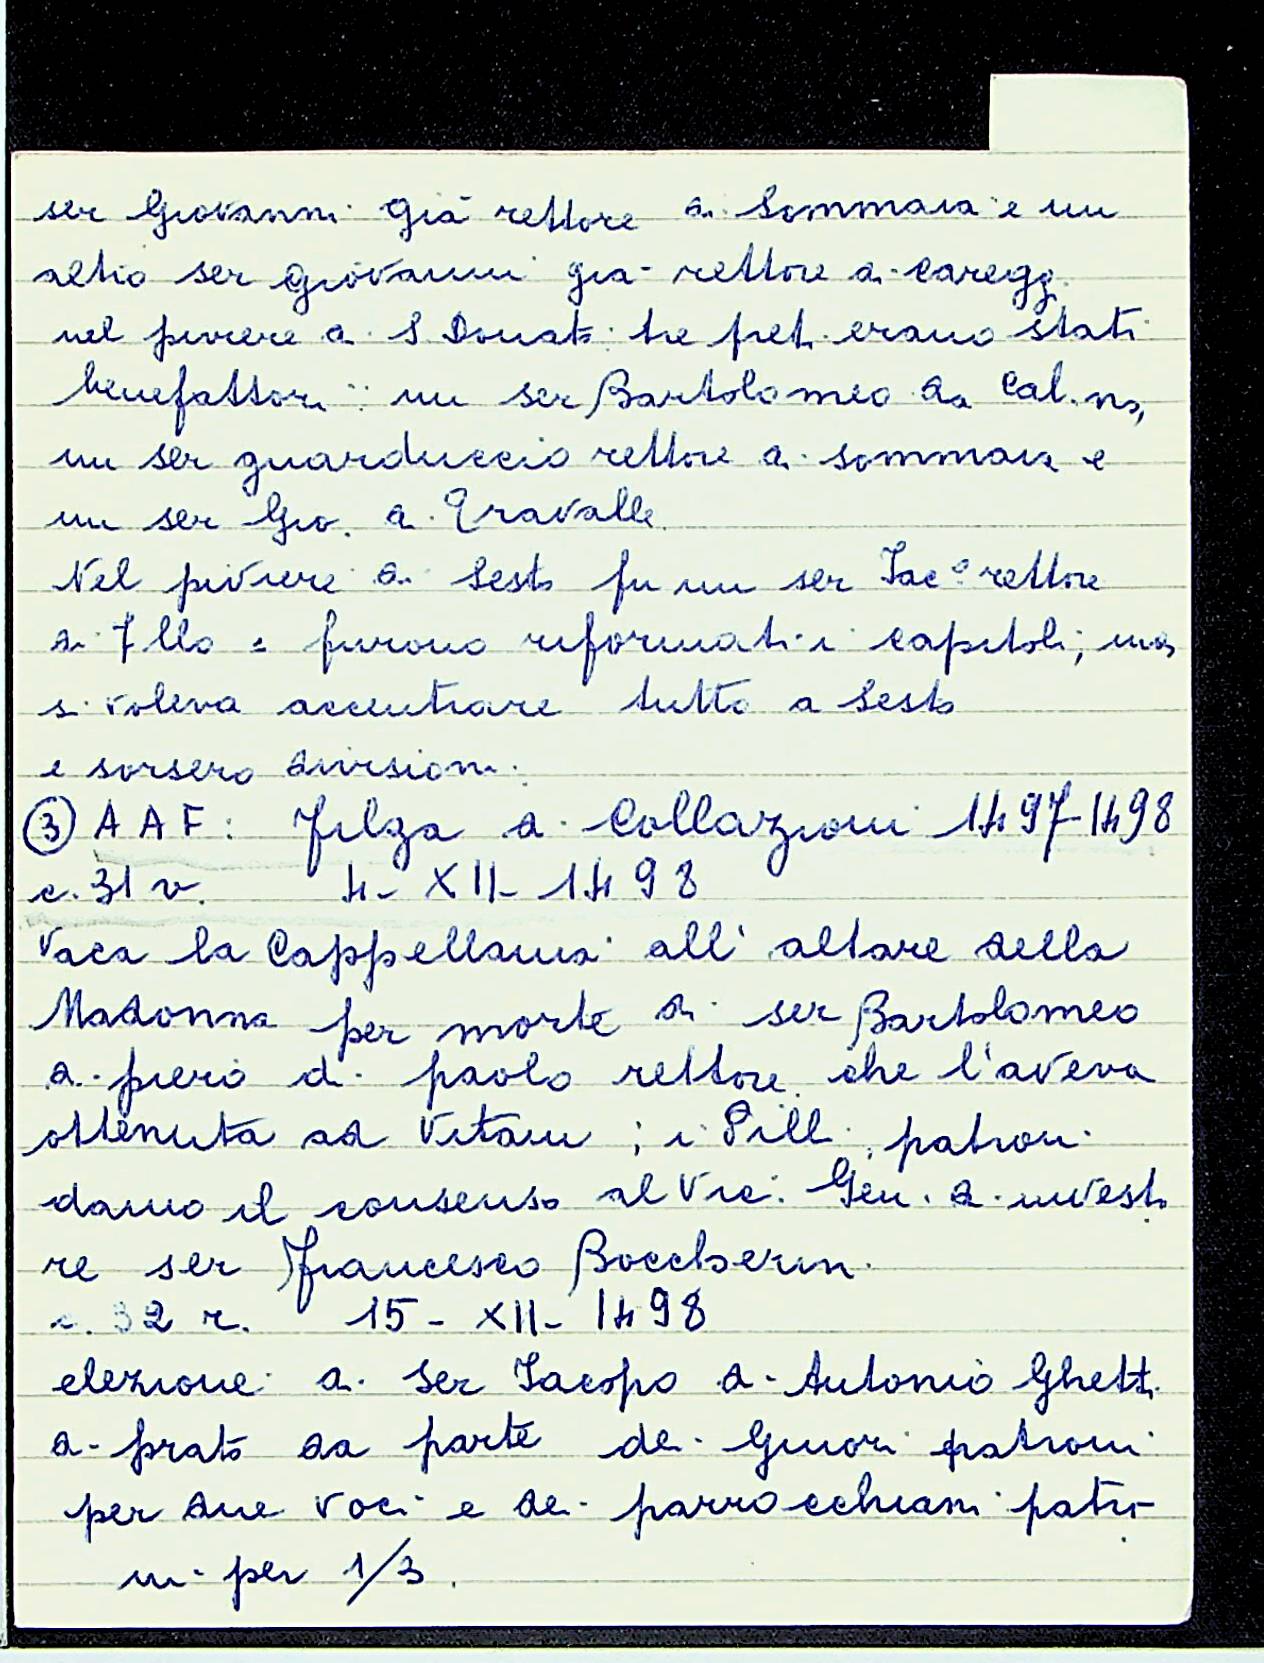 ser Giovanni già rettore di Sommaia e un
altro ser Giovanni già rettore di Careggi
nel piviere di S Donato: tre preti erano stati
benefattori: un ser Bartolomeo da Calino,
un ser guarduccio rettore di sommaia e
un ser Gio. di Travalle.
Nel piviere di Sesto fu un ser Iac° rettore
di : furono riformati i capitoli; ma
si voleva accentrare tutto a Sesto
e sorsero divisioni.
③ A A F: Filza di Collazioni 1497-1498
c. 31 v. 4- XII- 1498
Vaca la Cappellania all' altare della
Madonna per morte di ser Bartolomeo
di piero di paolo rettore che l'aveva
ottenuta ad Vitam; i Pilli patroni
danno il consenso al Vic. Gen. di investi
re ser Francesco Boccherini.
c. 32 r. 15- XII- 1498
elezione di ser Iacopo di Antonio Ghetti
di prato da parte dei Ginori patroni
per due voci e dei parrocchiani patro-
ni per 1/3.